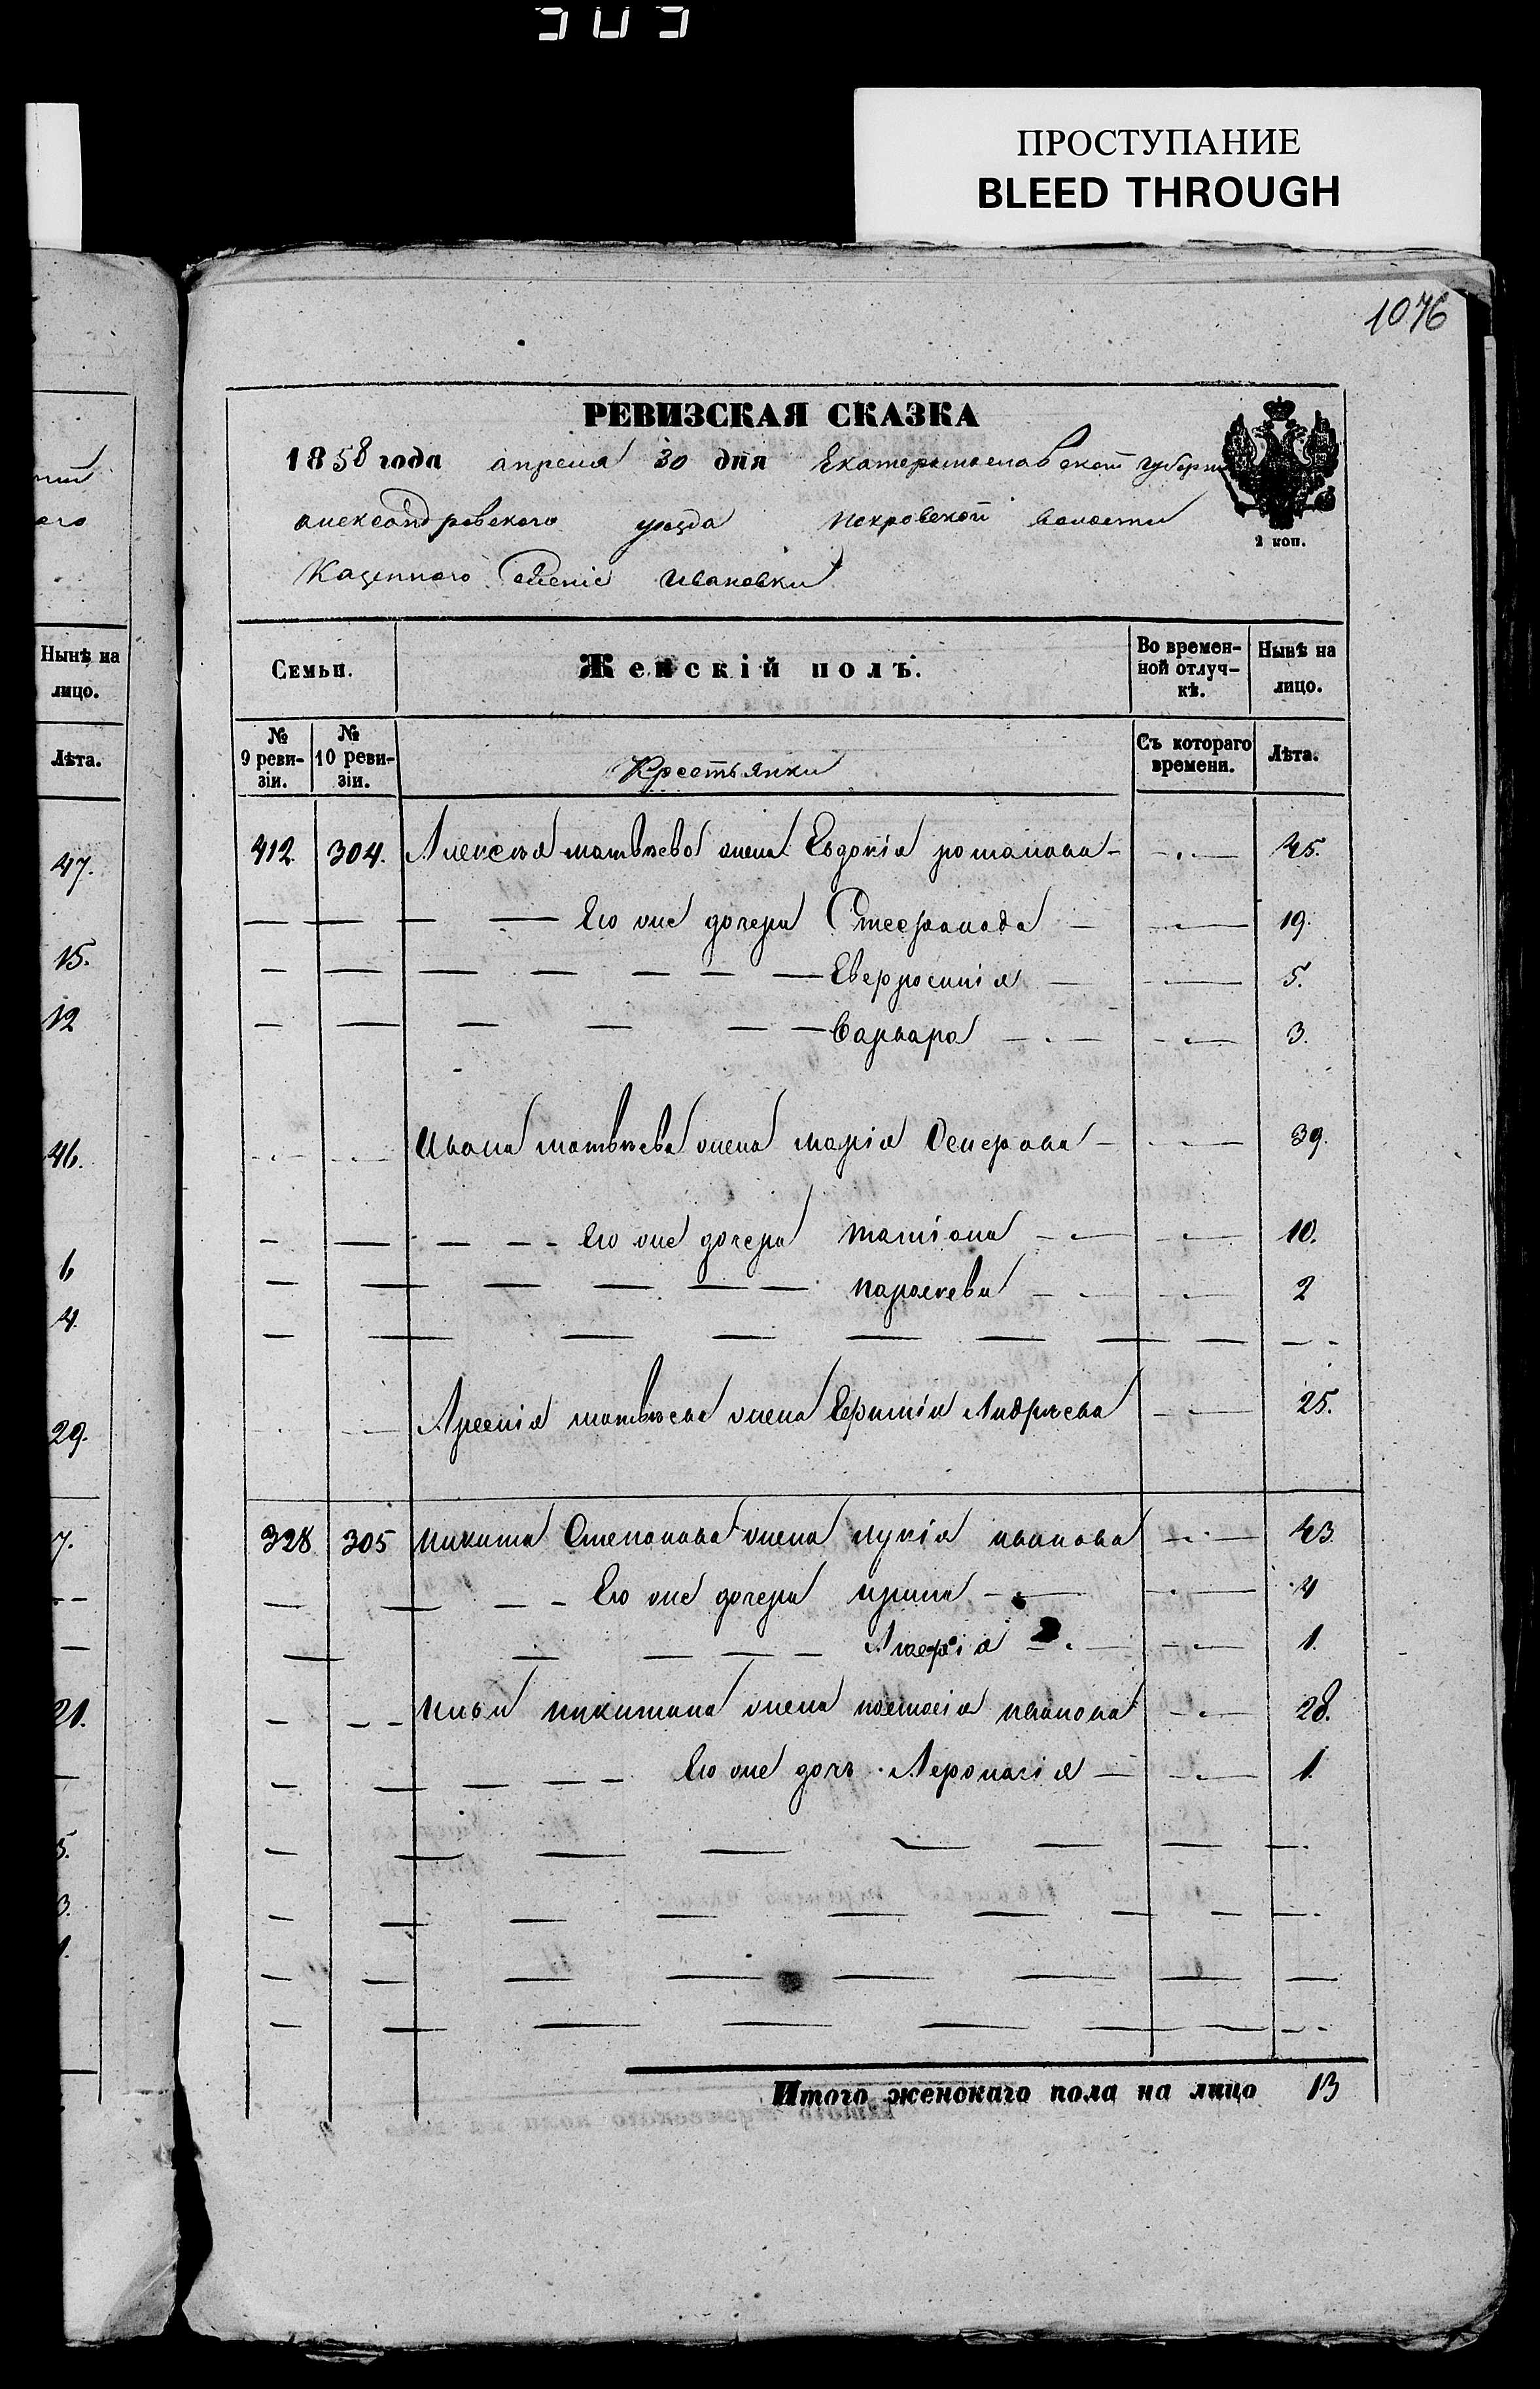 ПРОСТУПАНИЕ
BLEED THROUGH
1076
РЕВИЗСКАЯ СКАЗКА
1858 года апреля 30 дня Екатеринославской губерніи
александровского уезда покровской волости
2 коп.
Казенного Селеніе Ивановки
Семьи. Женскій полъ. Во временной отлучкѣ. Нынѣ на лицо.
№ 9 ревизіи. № 10 ревизіи. Крестьянки Съ котораго времени. Лѣта.
412. 304. Алексѣя матвѣева жена Евдокія романова 45.
Его же дочери Стефанида 19.
Евфросинія 5.
Варвара 3.
Ивана матвѣева жена марія 39.
Его же дочери татіана 10.
параскева 2
Арсенія матвѣева жена Андрѣева 25.
328 305 никита Степанова жена лукія иванова 43.
Его же дочери ирина 4
1.
Ильи никитина жена настасія иванова 28.
Его же дочь 1.
Итого женскаго пола на лицо 13
Нынѣ на лицо.
Лѣта.
47.
15.
12
46.
6
4.
29.
7.
21.
5.
3.
1.